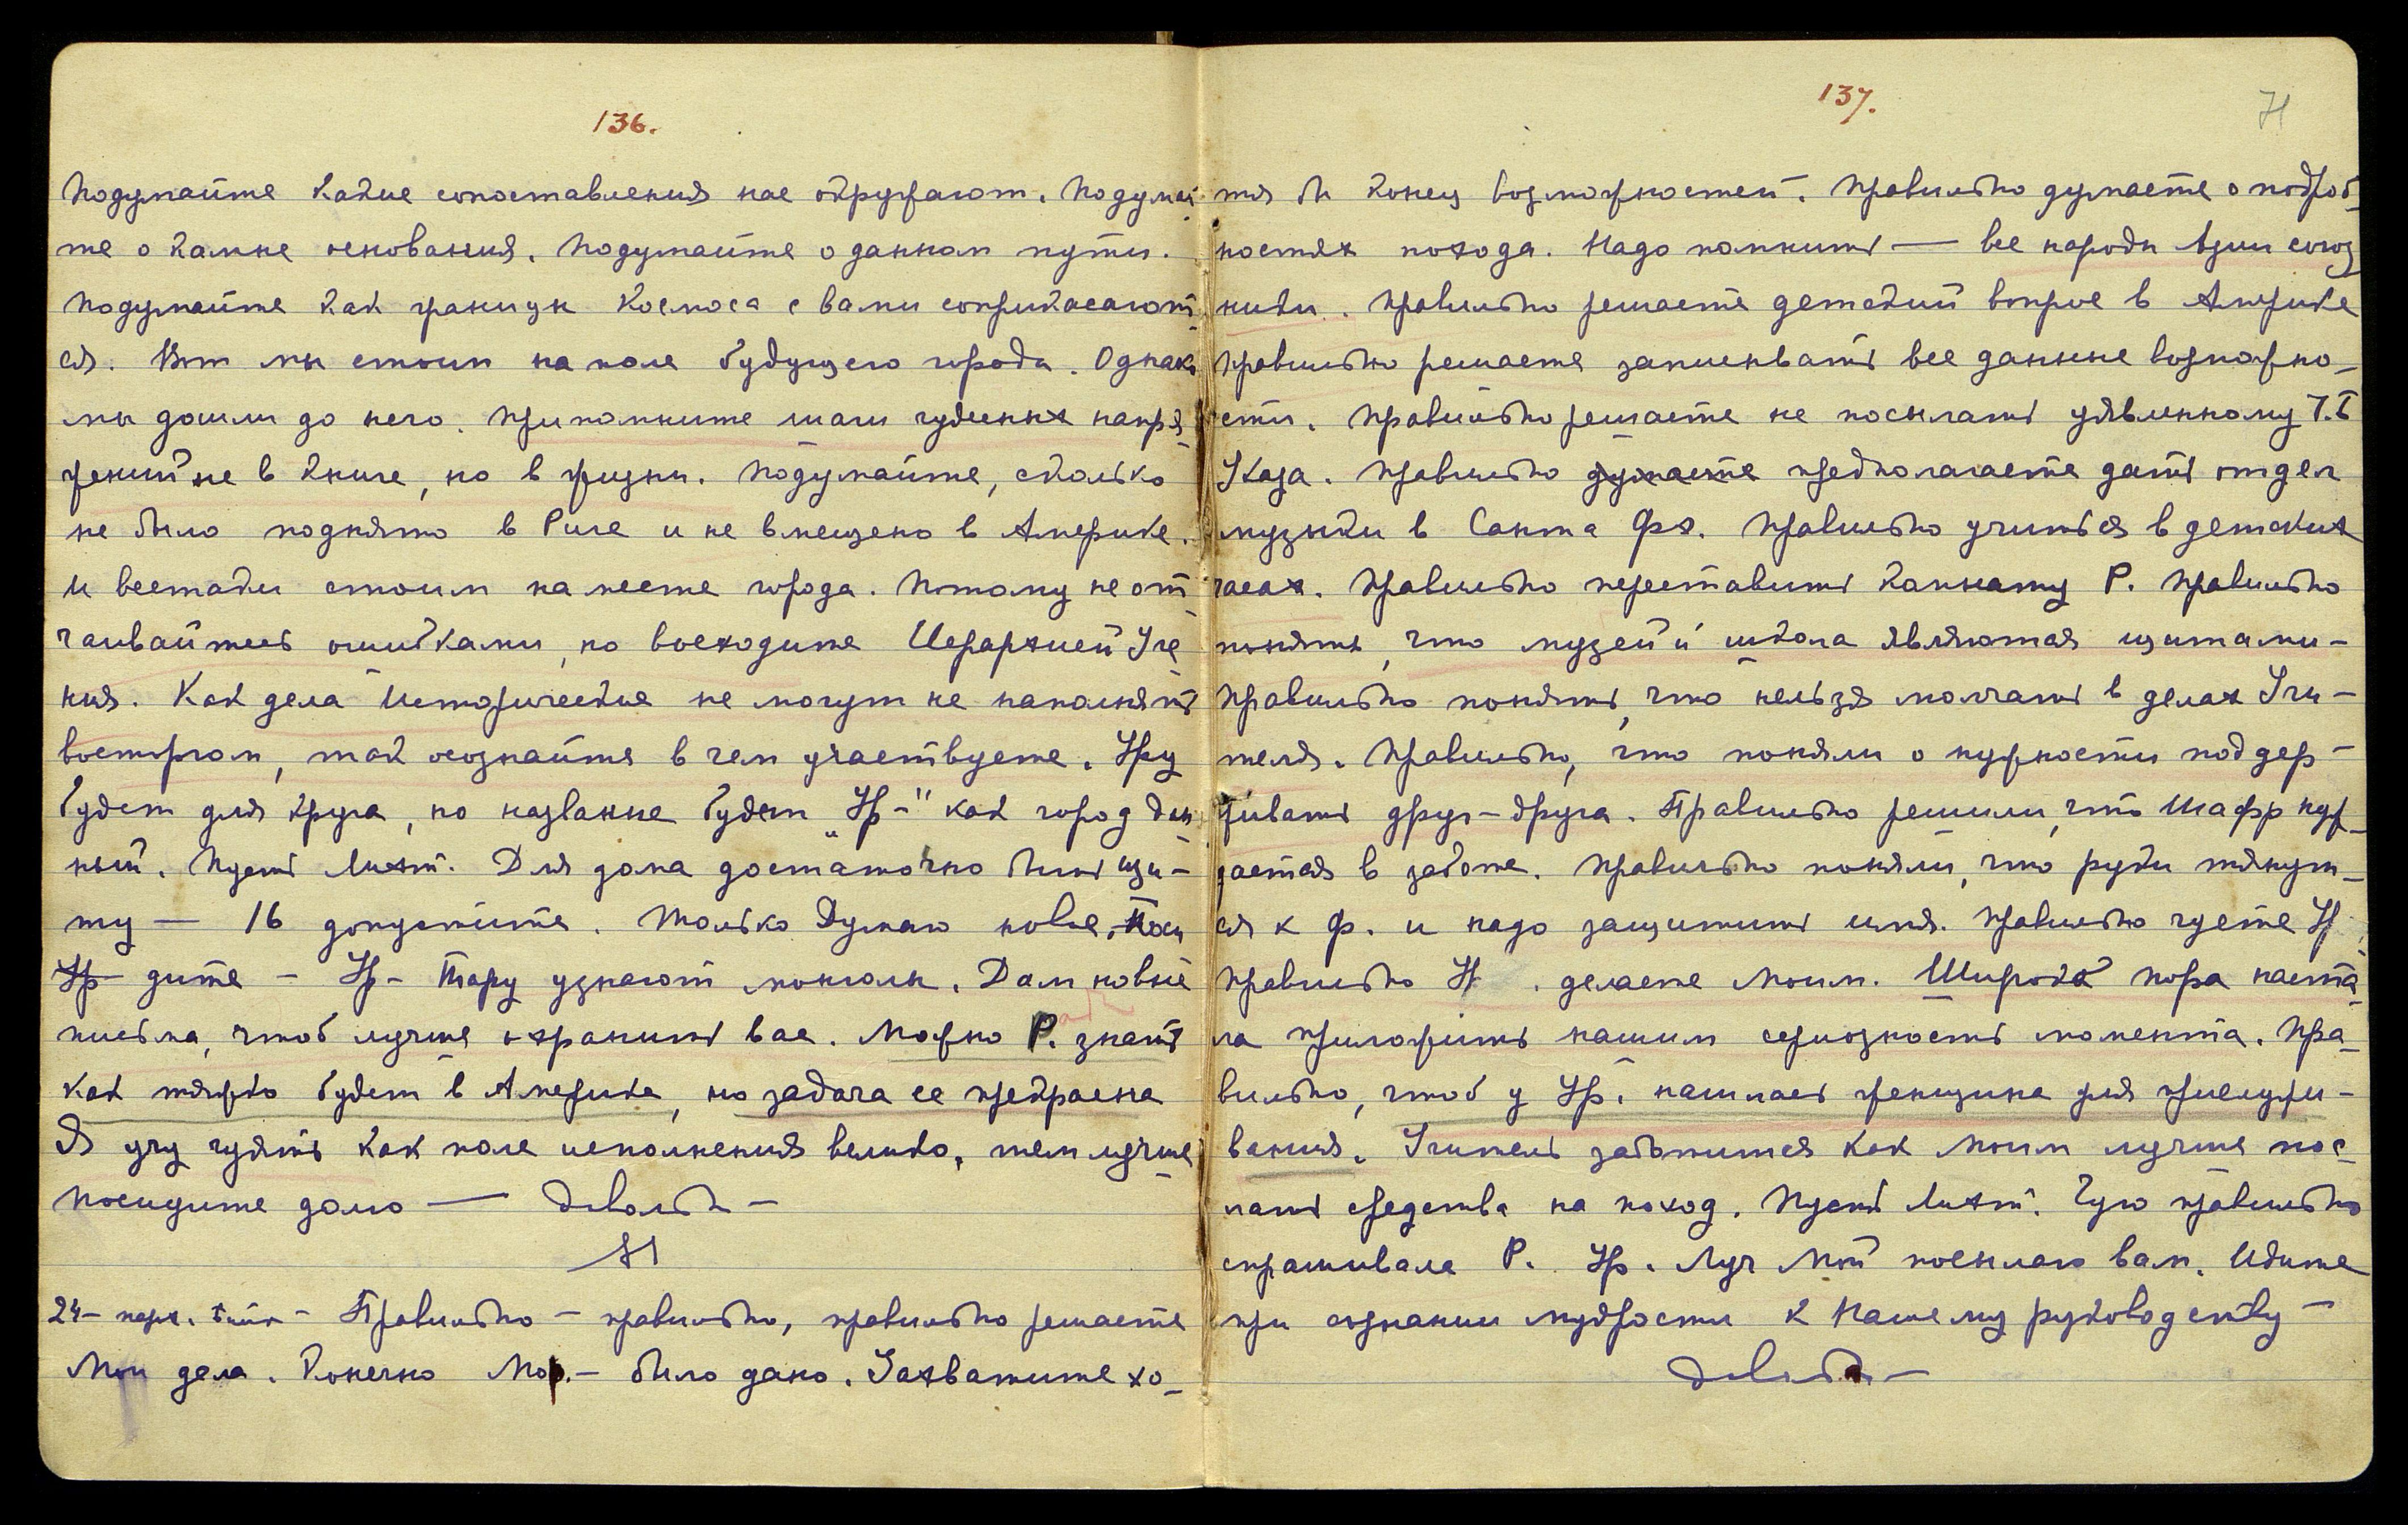 136.
Подумайте какие сопоставления нас окружают. Подумай-
те о камне основания. Подумайте о данном пути.
Подумайте как границы Космоса с вами соприкасают-
ся. Вот мы стоим на поле будущего города. Однако
мы дошли до него. Припомните шаги чудесных напря-
жений не в книге, но в жизни. Подумайте, сколько
не было поднято в Риге и не вмещено в Америке.
И всетаки стоим на месте города. Потому не от-
чаивайтесь ошибками, но восходите Иерархией Уче
ния. Как дела Исторические не могут не наполнять
восторгом, так осознайте в чем участвуете. Уру
будет для круга, но название будет „Ур-" как город дан
ный. Пусть Лихт. Для дома достаточно быть щи-
ту — 16 допустите. Только Думаю новые,
Ур дите - Ур- Тару узнают монголы. Дам новые
письма, чтоб лучше охранить вас. Можно Р. знать
как тяжко будет в Америке, но задача ее прекрасна
Я учу чуять как поле исполнения велико, тем лучше
посидите домо — Довольно -
24- март. - Правильно - правильно, правильно решаете
Мои дела. Конечно Мор.- было дано. Захватите хо-
137.
71
тя бы конец возможностей. Правильно думаете о подроб-
ностях похода. Надо помнить — все народы Азии союз
ники. Правильно решаете детский вопрос в Америке
Правильно решаете записывать все данные возможно-
сти. Правильно решаете не посылать уявленному Т.Т
Указа. Правильно думаете предполагаете дать отдел
музыки в Санта Фэ. Правильно учиться в детских
часах. Правильно переставить комнату Р. Правильно
понять, что музей и школа являются щитами-
Правильно понять, что нельзя молчать в делах Учи-
теля. Правильно, что поняли о нужности поддер-
живать друг-друга. Правильно решили, что Шафр нуж-
дается в заботе. Правильно поняли, что руки тянут-
ся к Ф. и надо защитить имя. Правильно чуете
Правильно Н . делаете Моим. Широко пора наста-
ла приложить нашим серьозность момента. Пра-
вильно, чтоб у Ур. нашлась женщина для прислужи-
вания. Учитель заботится как Моим лучше пос-
лать средства на поход. Пусть Лихт. Чую правильно
спрашивала Р. Ур. Луч Мой посылаю вам. Идите
при сознании мудрости к Нашему руководству -
Довольно -